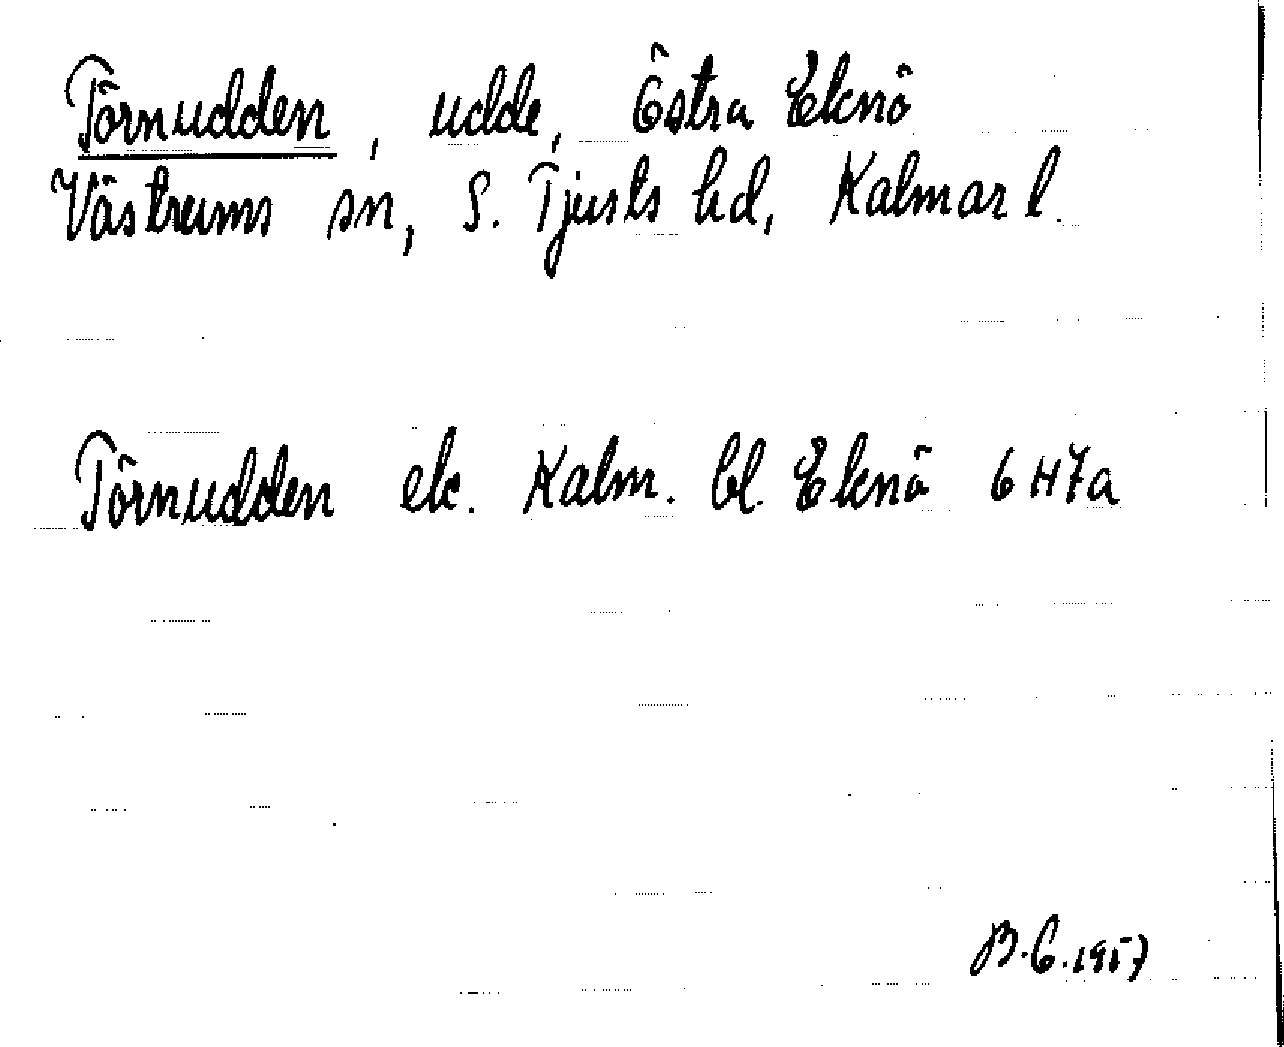 Törnudden, udde, Östra Eknö
Västrums sn, S. Tjusts hd, Kalmar l.
Törnudden ek. Kalm. bl. Eknö 6 H7a
B.C. 1957